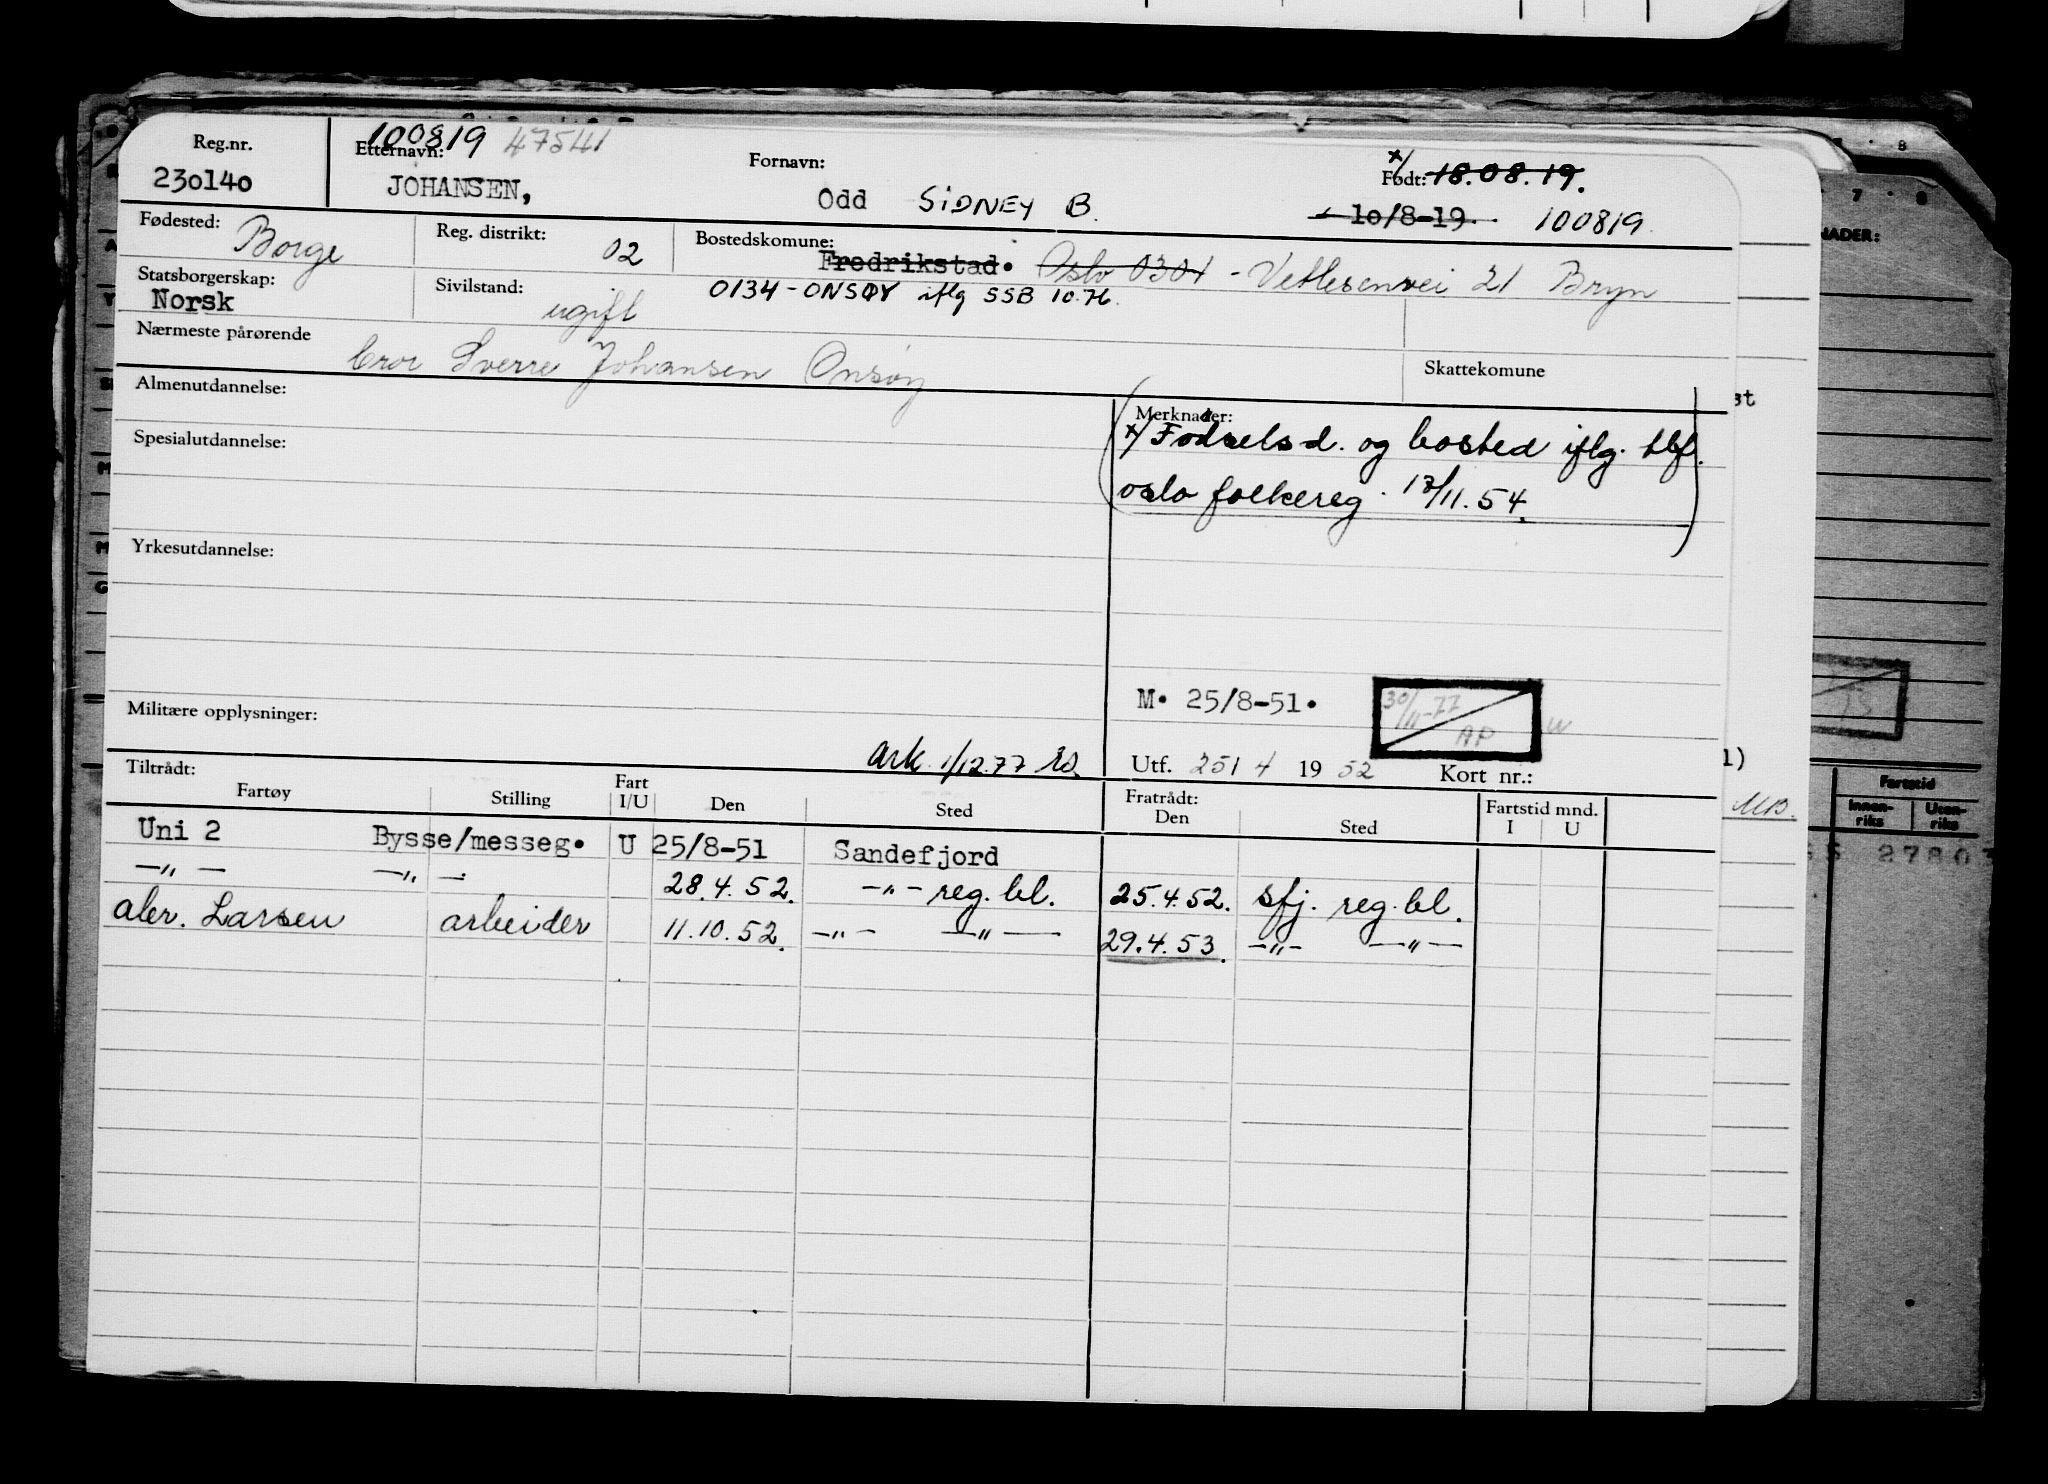 Reg.nr. 100819 47541
Etternavn: Fornavn: x/ Født: 18.08.19.
230140 JOHANSEN, Odd SIDNEY B. 10/8-19. 100819
Fødested: Borge Reg. distrikt: 02 Bostedskomune: Fredrikstad. Oslo 0301 - Vetlesenvei 21 Bryn
Statsborgerskap: Norsk Sivilstand: ugift 0134 - ONSØY iflg SSB 10.76.
Nærmeste pårørende Bror Sverre Johansen Onsøy Skattekomune
Almenutdannelse:
Merknader:
x/ Fødselsd. og bosted iflg. tlf.
oslo folkereg. 17/11.54.
Spesialutdannelse:
Yrkesutdannelse:
M. 25/8-51. 30/11-77 AP
Militære opplysninger: Ark. 1/12.77
Utf. 25/4 1952 Kort nr.:
Tiltrådt: Fratrådt:
Fartøy Stilling Fart I/U Den Sted Den Sted Fartstid mnd. I U
Uni 2 Bysse/messeg. U 25/8-51 Sandefjord
-„- -„- 28.4.52. -„- reg. bl. 25.4.52. Sfj. reg. bl.
aler. Larsen arbeider 11.10.52. -„- -„- 29.4.53. -„- -„-
NADER:
st
1)
MB.
Fartstid
Innenriks Utenriks
2780
7 8